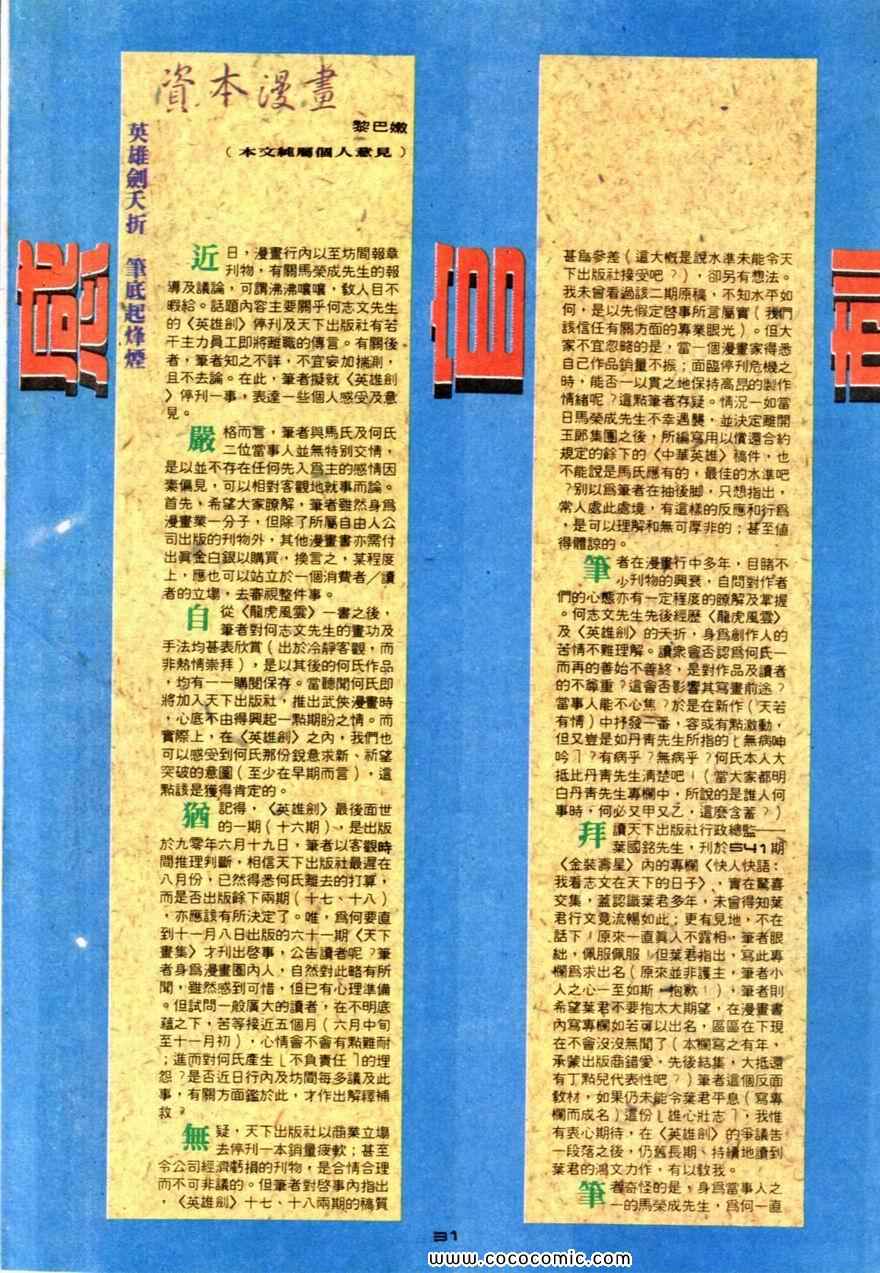 資本漫畫
黎巴嫩
（本文純屬個人意見）
英雄劍夭折　筆底起烽煙
近日，漫畫行內以至坊間報章
刊物，有關馬榮成先生的報
導及議論，可謂沸沸嚷嚷，教人目不
暇給。話題內容主要關乎何志文先生
的〈英雄劍〉停刊及天下出版社有若
干主力員工即將離職的傳言。有關後
者，筆者知之不詳，不宜妄加揣測，
且不去論。在此，筆者擬就〈英雄劍
〉停刊一事，表達一些個人感受及意
見。
嚴格而言，筆者與馬氏及何氏
二位當事人並無特別交情，
是以並不存在任何先入爲主的感情因
素偏見，可以相對客觀地就事而論。
首先、希望大家瞭解，筆者雖然身爲
漫畫業一分子，但除了所屬自由人公
司出版的刊物外，其他漫畫書亦需付
出眞金白銀以購買，換言之，某程度
上，應也可以站立於一個消費者／讀
者的立場，去審視整件事。
自從〈龍虎風雲〉一書之後，
筆者對何志文先生的畫功及
手法均甚表欣賞（出於冷靜客觀，而
非熱情崇拜），是以其後的何氏作品
，均有一一購閱保存。當聽聞何氏即
將加入天下出版社，推出武俠漫畫時
，心底不由得興起一點期盼之情。而
實際上，在〈英雄劍〉之內，我們也
可以感受到何氏那份銳意求新、祈望
突破的意圖（至少在早期而言），這
點該是獲得肯定的。
猶記得，〈英雄劍〉最後面世
的一期（十六期）、是出版
於九零年六月十九日，筆者以客觀時
間推理判斷，相信天下出版社最遲在
八月份，已然得悉何氏離去的打算，
而是否出版餘下兩期（十七、十八）
，亦應該有所決定了。唯，爲何要直
到十一月八日出版的六十一期〈天下
畫集〉才刊出啓事，公告讀者呢？筆
者身爲漫畫圈內人，自然對此略有所
聞，雖然感到可惜，但已有心理準備
。但試問一般廣大的讀者，在不明底
蘊之下，苦等接近五個月（六月中旬
至十一月初），心情會不會有點難耐
；進而對何氏產生「不負責任」的埋
怨？是否近日行內及坊間每多議及此
事，有關方面鑑於此，才作出解釋補
救？
無疑，天下出版社以商業立場
去停刊一本銷量疲軟；甚至
令公司經濟虧損的刊物，是合情合理
而不可非議的。但筆者對啓事內指出
，〈英雄劍〉十七、十八兩期的稿質
甚爲參差（這大概是說水準未能令天
下出版社接受吧？），卻另有想法。
我未曾看過該二期原稿，不知水平如
何，是以先假定啓事所言屬實（我們
該信任有關方面的專業眼光）。但大
家不宜忽略的是，當一個漫畫家得悉
自己作品銷量不振；面臨停刊危機之
時，能否一以貫之地保持高昂的製作
情緒呢？這點筆者存疑。情況一如當
日馬榮成先生不幸遇襲，並決定離開
玉郎集團之後，所編寫用以償還合約
規定的餘下的〈中華英雄〉稿件，也
不能說是馬氏應有的，最佳的水準吧
？別以爲筆者在抽後脚，只想指出，
常人處此處境，有這樣的反應和行爲
，是可以理解和無可厚非的；甚至値
得體諒的。
筆者在漫畫行中多年，目睹不
少刊物的興衰，自問對作者
們的心態亦有一定程度的瞭解及掌握
。何志文先生先後經歷〈龍虎風雲〉
及〈英雄劍〉的夭折，身爲創作人的
苦情不難理解。讀衆會否認爲何氏一
而再的善始不善終，是對作品及讀者
的不尊重？這會否影響其寫畫前途？
當事人能不心焦？於是在新作（天若
有情）中抒發一番，容或有點激動，
但又豈是如丹靑先生所指的「無病呻
吟」？有病乎？無病乎？何氏本人大
抵比丹靑先生淸楚吧！（當大家都明
白丹靑先生專欄中，所說的是誰人何
事時，何必又甲又乙，這麼含蓄？）
拜讀天下出版社行政總監——
葉國銘先生，刊於541期
〈金裝壽星〉內的專欄〈快人快語：
我看志文在天下的日子〉、實在驚喜
交集，蓋認識葉君多年，未曾得知葉
君行文竟流暢如此；更有見地，不在
話下！原來一直眞人不露相，筆者眼
拙，佩服佩服！但葉君指出，寫此專
欄爲求出名（原來並非護主，筆者小
人之心一至如斯，抱歉！），筆者則
希望葉君不要抱太大期望，在漫畫書
內寫專欄如若可以出名，區區在下現
在不會沒沒無聞了（本欄寫之有年，
承蒙出版商錯愛，先後結集，大抵還
有丁點兒代表性吧？）筆者這個反面
敎材，如果仍未能令葉君平息（寫專
欄而成名）這份「雄心壯志」，我惟
有衷心期待，在〈英雄劍〉的爭議告
一段落之後，仍舊長期、持續地讀到
葉君的鴻文力作，有以敎我。
筆者奇怪的是，身爲當事人之
一的馬榮成先生，爲何一直
感
官
31
www.cococomic.com